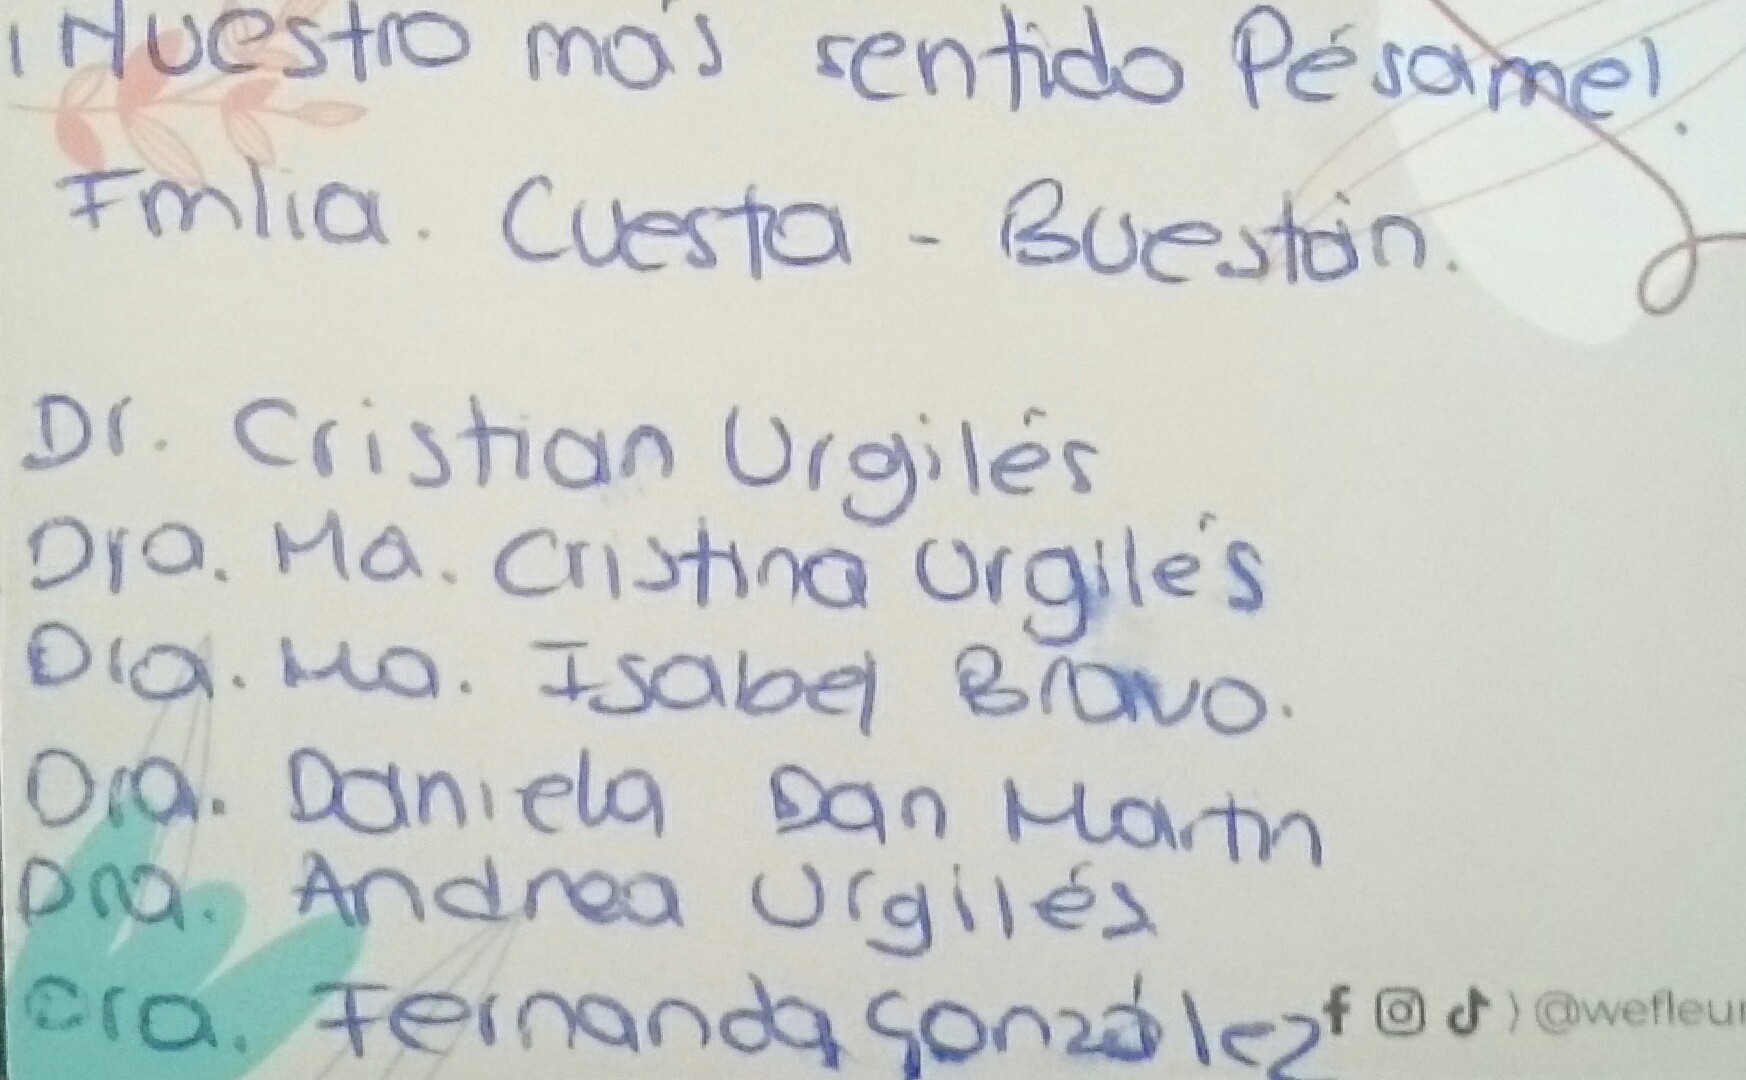 ¡Nuestro más sentido Pésame!.
Fmlia. Cuesta - Buestán.
Dr. Cristian Urgilés
Dra. Ma. Cristina Urgilés
Dra. Ma. Isabel Bravo.
Dra. Daniela San Martin
Dra. Andrea Urgilés
Dra. Fernanda González
@wefleur